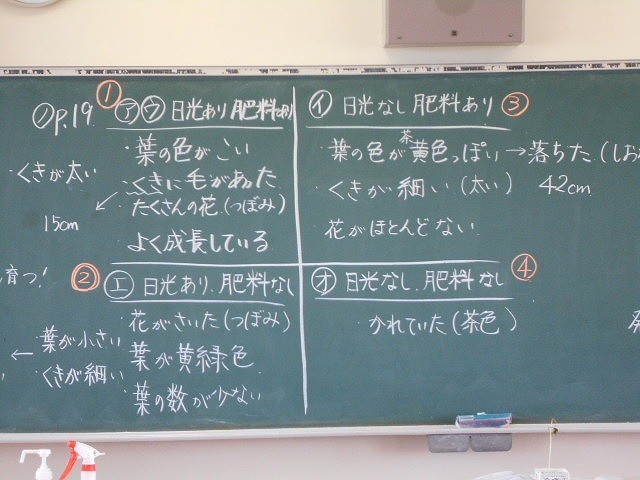 ノP.19
・くきが太い
15cm
育つ!
葉が小さい
くきが細い
① ㋐㋒ 日光あり 肥料あり
・葉の色がこい
・くきに毛があった
・たくさんの花(つぼみ)
よく成長している
② ㋓ 日光あり.肥料なし
・花がさいた(つぼみ)
葉が黄緑色
・葉の数が少ない
㋑ 日光なし 肥料あり ③
・葉の色が黄色っぽい→落ちた.(しおれ
茶
・くきが細い(太い) 42cm
花がほとんどない
㋔ 日光なし.肥料なし ④
かれていた(茶色)